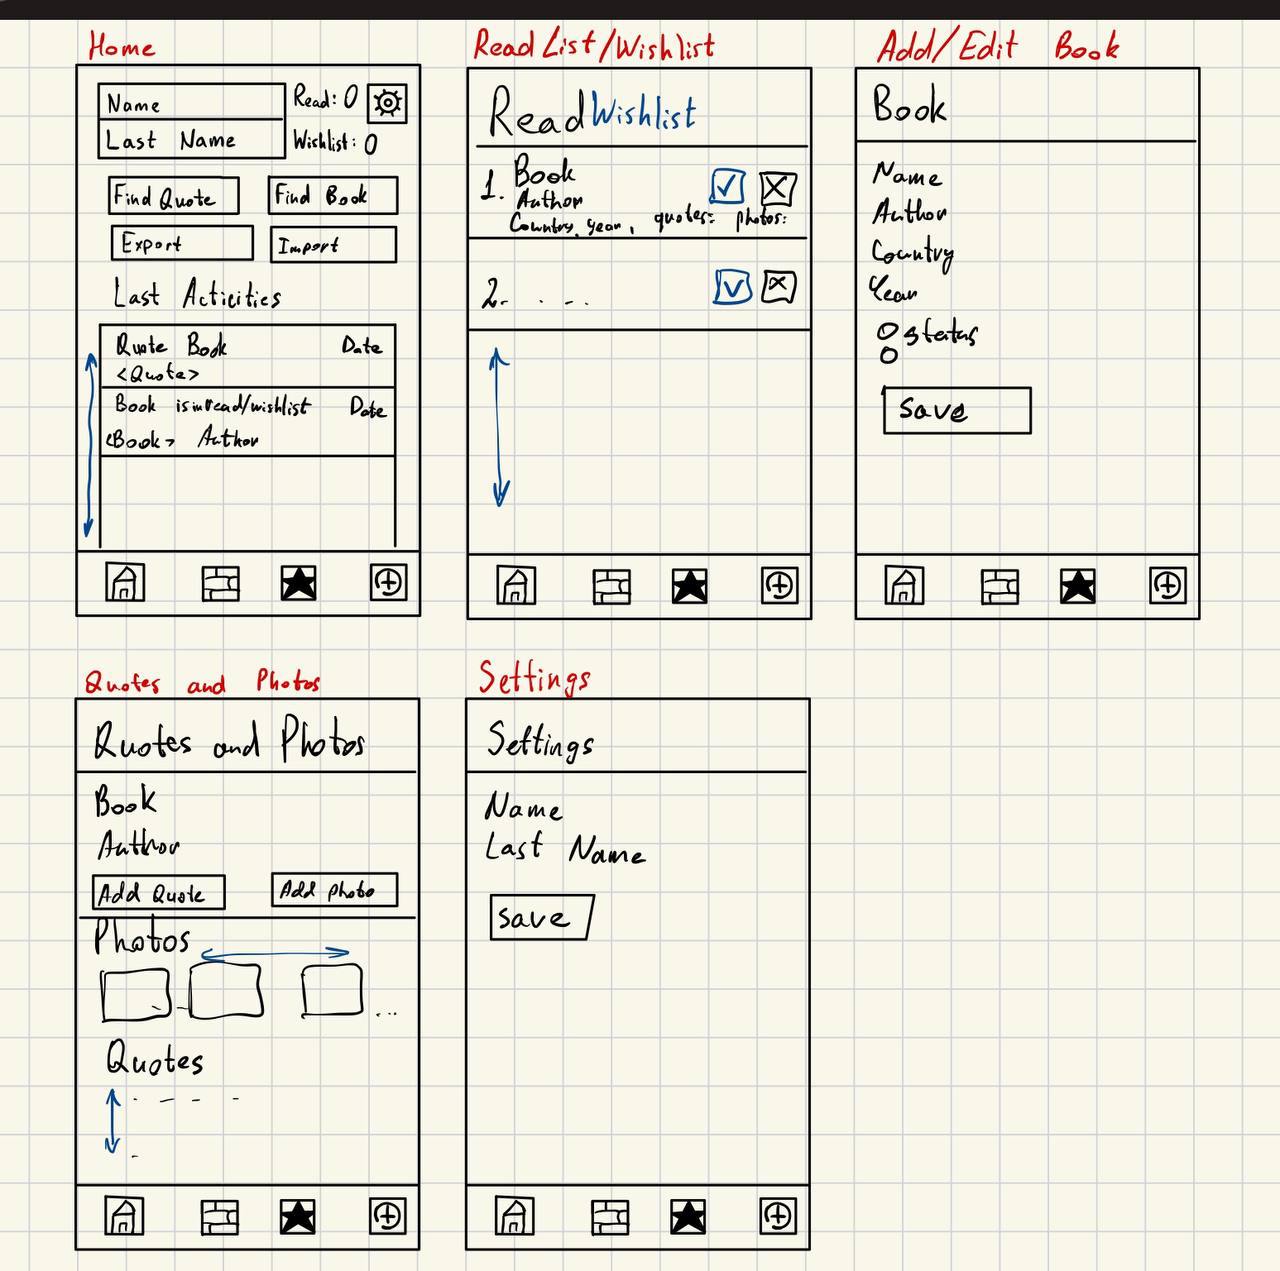 Home
Name
Last Name
Read: 0
Wishlist: 0
Find Quote
Find Book
Export
Import
Last Acticities
Quote Book Date
<Quote>
Book is in read/wishlist Date
<Book> Author
Read List/Wishlist
Read Wishlist
1. Book
Author
Country, year, quotes: photos:
2. . . .
Add/Edit Book
Book
Name
Author
Country
Year
status
save
Quotes and Photos
Quotes and Photos
Book
Author
Add Quote
Add photo
Photos
...
Quotes
Settings
Settings
Name
Last Name
save